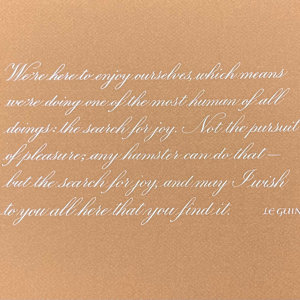 We're here to enjoy ourselves, which means
we're doing one of the most human of all
doings: the search for joy. Not the pursuit
of pleasure; any hamster can do that —
but the search for joy, and may I wish
to you all here that you find it. LE GUIN